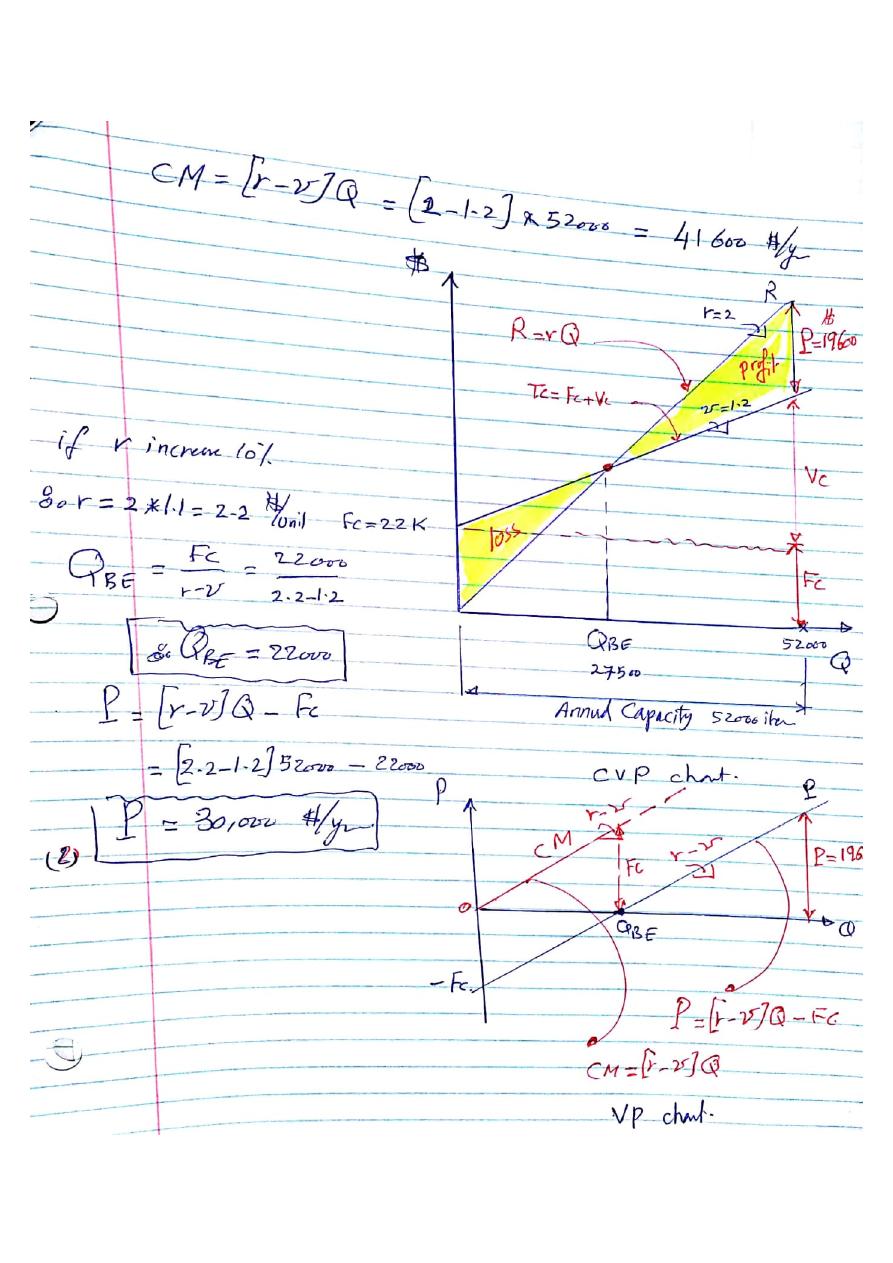 CM = [r-v]Q = [2-1.2] * 52000 = 41600 $/yr
$
R
r=2
$
P=19600
R=rQ
profit
Tc=Fc+Vc
v=1.2
if r increase 10%
Vc
∴ r = 2*1.1 = 2.2 $/unit Fc=22K
loss
QBE = Fc/r-v = 22000/2.2-1.2
Fc
∴ QBE = 22000
QBE
27500
52000
Q
P = [r-v]Q - Fc
Annual Capacity 52000
= [2.2-1.2]52000 - 22000
CVP chart.
P = 30,000 $/yr
(2)
P
r-v
P
CM
Fc
r-v
P=196
0
QBE
Q
-Fc
P=[r-v]Q-Fc
CM=[r-v]Q
VP chart.